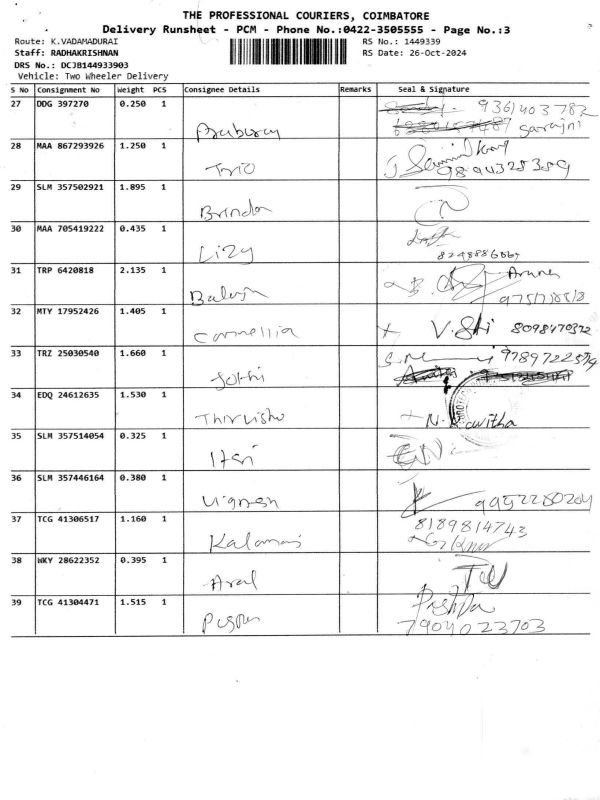 THE PROFESSIONAL COURIERS, COIMBATORE
Delivery Runsheet - PCM - Phone No.:0422-3505555 - Page No.:3
Route: K.VADAMADURAI RS No.: 1449339
Staff: RADHAKRISHNAN RS Date: 26-Oct-2024
DRS No.: DCJB144933903
Vehicle: Two Wheeler Delivery
S No Consignment No Weight PCS Consignee Details Remarks Seal & Signature
27 DDG 397270 0.250 1
9361403782
Sarajni
28 MAA 867293926 1.250 1
Trio 9894328389
29 SLM 357502921 1.895 1
Brinda
30 MAA 705419222 0.435 1
Lizy
31 TRP 6420818 2.135 1
Balaji
32 MTY 17952426 1.405 1
Cornellia V. Sri 8098470372
33 TRZ 25030540 1.660 1
Jothi
34 EDQ 24612635 1.530 1
Thirvishu N. Kavitha
35 SLM 357514054 0.325 1
36 SLM 357446164 0.380 1
Vignesh 9952280204
37 TCG 41306517 1.160 1 8189814743
38 WKY 28622352 0.395 1
Aral
39 TCG 41304471 1.515 1
7904023703